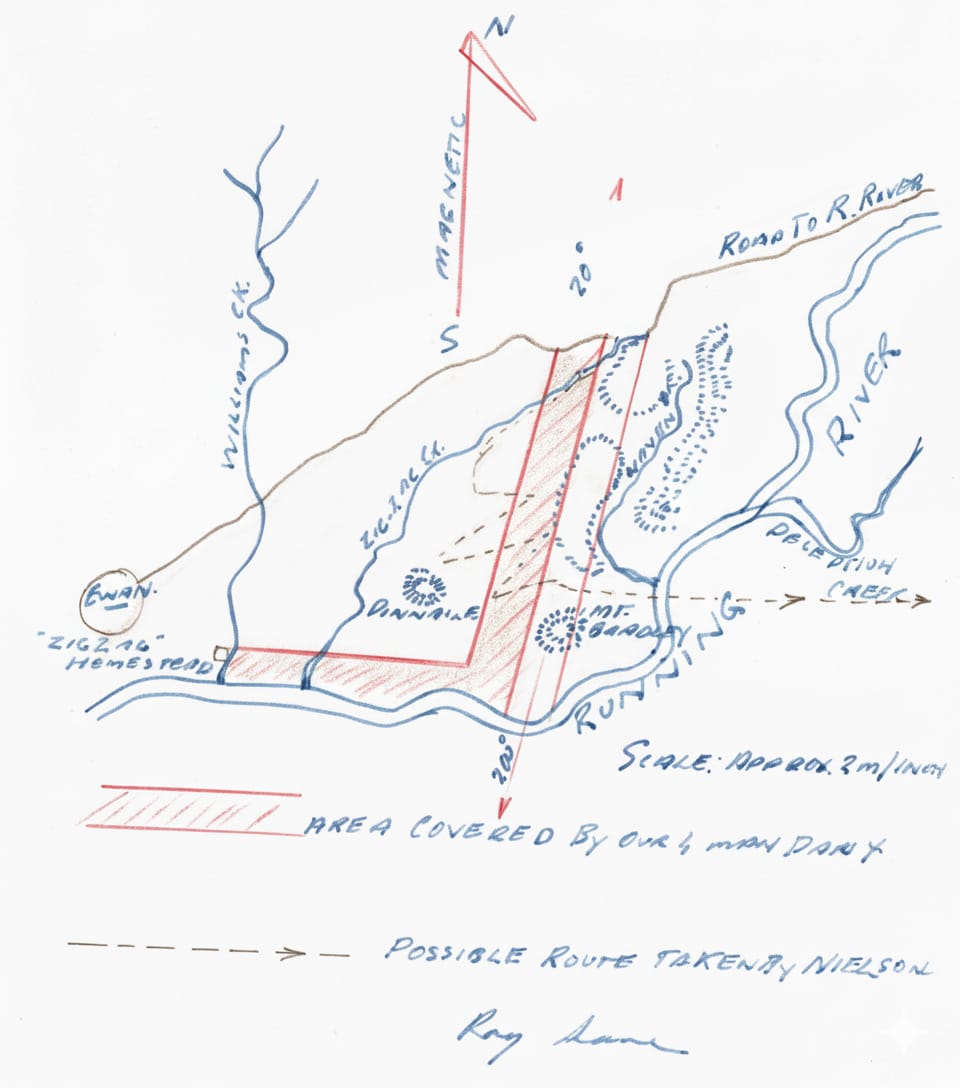 N
MAGNETIC
S
20°
ROAD TO R. RIVER
WILLIAMS CK.
ZIG-ZAG CK.
RIVER
DECEPTION
CREEK
EWAN.
"ZIGZAG"
HOMESTEAD
PINNACLE
MT.
BRADLEY
RUNNING
200°
SCALE: APPROX. 2m/INCH
AREA COVERED BY OUR 4 MAN PARTY
POSSIBLE ROUTE TAKEN BY NIELSON
Ray